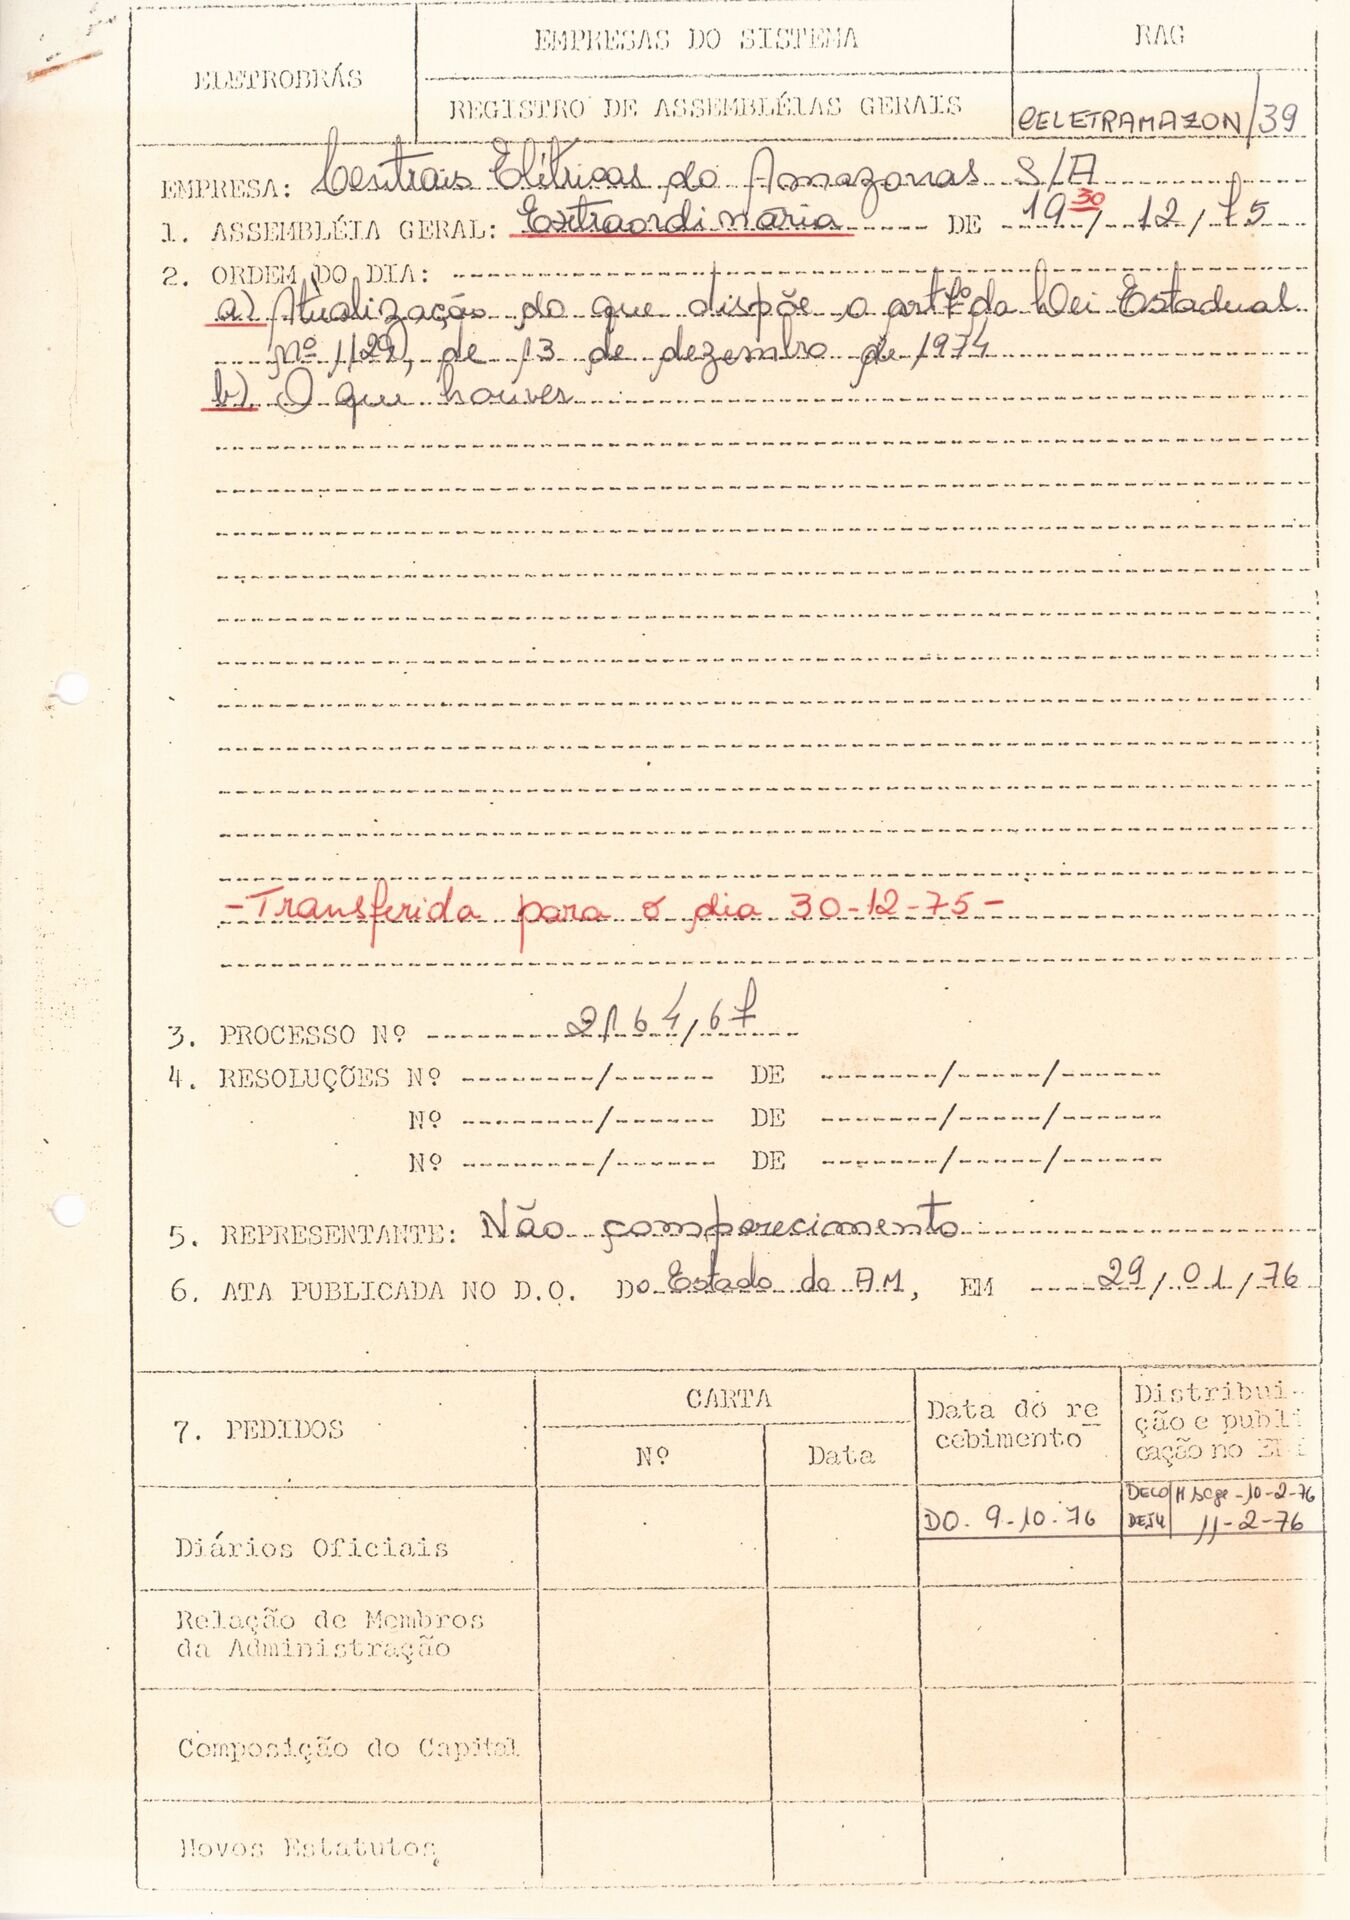 ELETROBRÁS
EMPRESAS DO SISTEMA
REGISTRO DE ASSEMBLÉIAS GERAIS
RAG
CELETRAMAZON/39
EMPRESA: Centrais Elétricas do Amazonas S/A
1. ASSEMBLÉIA GERAL: Extraordinária DE 19 30/12/75
2. ORDEM DO DIA:
a) Atualização do que dispõe o artº da Lei Estadual
nº 1129, de 13 de dezembro de 1974
b) O que houver
-Transferida para o dia 30-12-75-
3. PROCESSO Nº 2164/67
4. RESOLUÇÕES Nº / DE / /
Nº / DE / /
Nº / DE / /
5. REPRESENTANTE: Não comparecimento
6. ATA PUBLICADA NO D.O. Do Estado do AM, EM 29/01/76
7. PEDIDOS
CARTA
Nº
Data
Data do re
cebimento
Distribui-
ção e publi
cação no
Diários Oficiais
DO. 9-10-76
DECO 10-2-76
DEJU 11-2-76
Relação de Membros
da Administração
Composição do Capital
Novos Estatutos